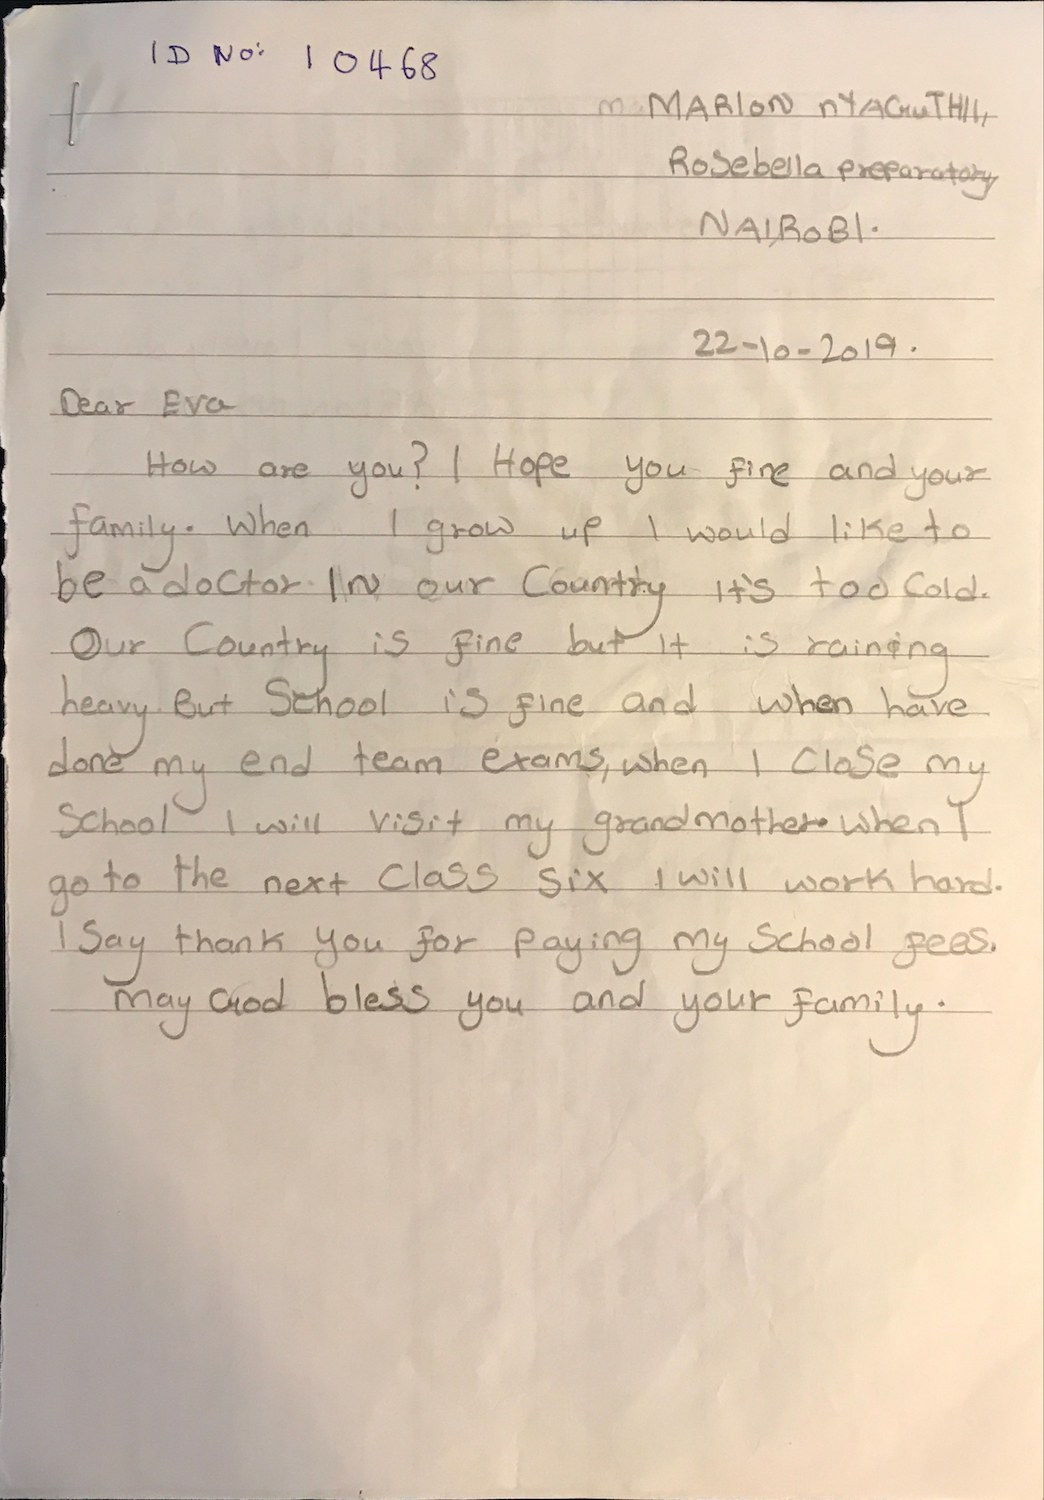 ID No: 10468
MARION nYAGuTHII,
Rosebella preparatory
NAIRoBI.
22-10-2019.
Dear Eva
How are you? I Hope you fine and your
family. When I grow up I would like to
be a doctor. IN our Country It's too Cold.
Our Country is fine but It is raining
heavy. But School is fine and when have
done my end team exams, when I Close my
School I will visit my grandmother. when I
go to the next Class six I will work hard.
I Say thank you for paying my School fees.
may God bless you and your family.